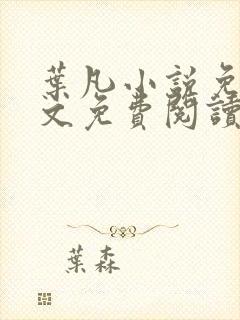 葉凡小說免
文免費閱讀
葉森